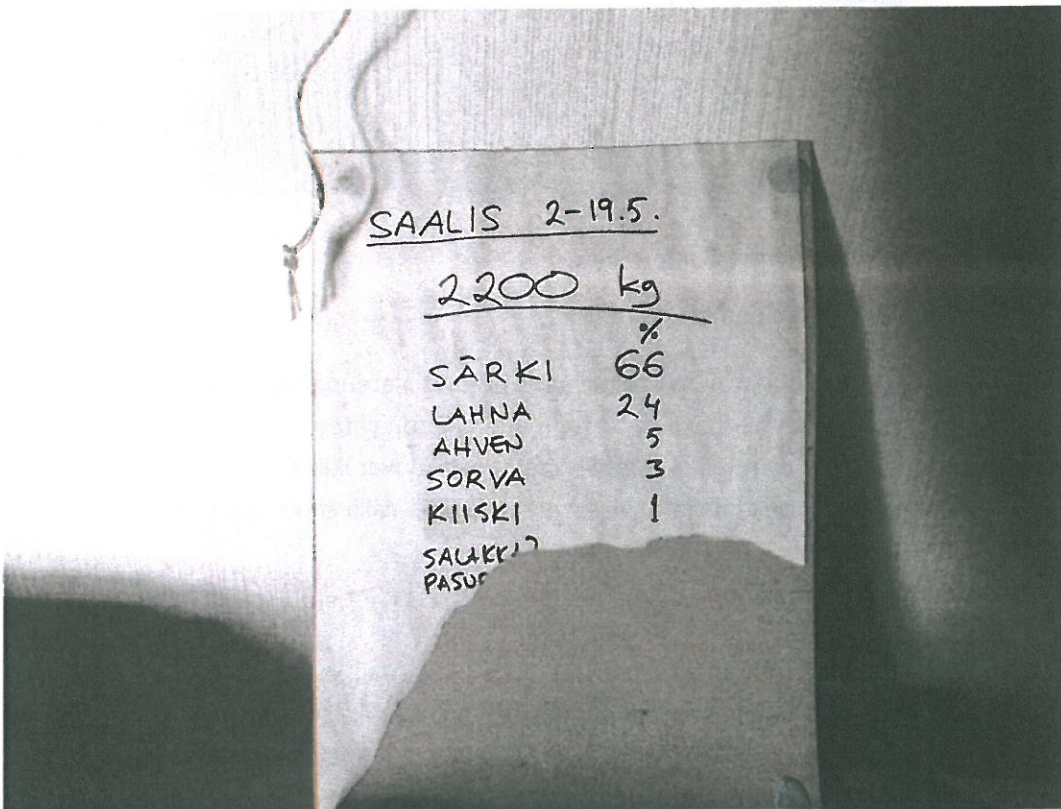 SAALIS 2-19.5.
2200 kg
%
SÄRKI 66
LAHNA 24
AHVEN 5
SORVA 3
KIISKI 1